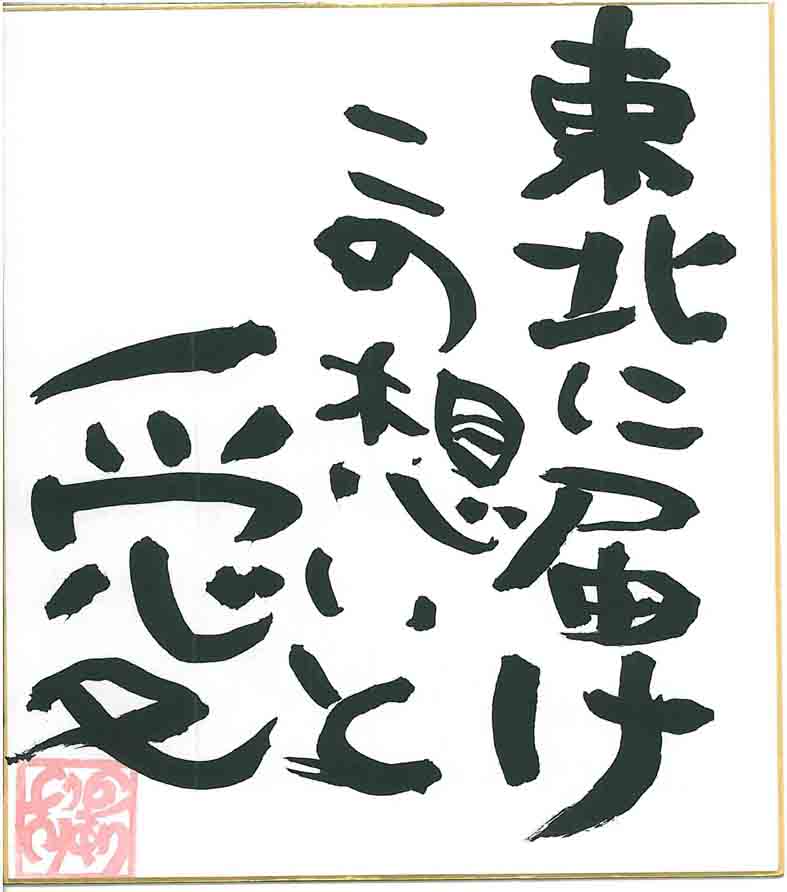 東北に届け
この想いと
愛